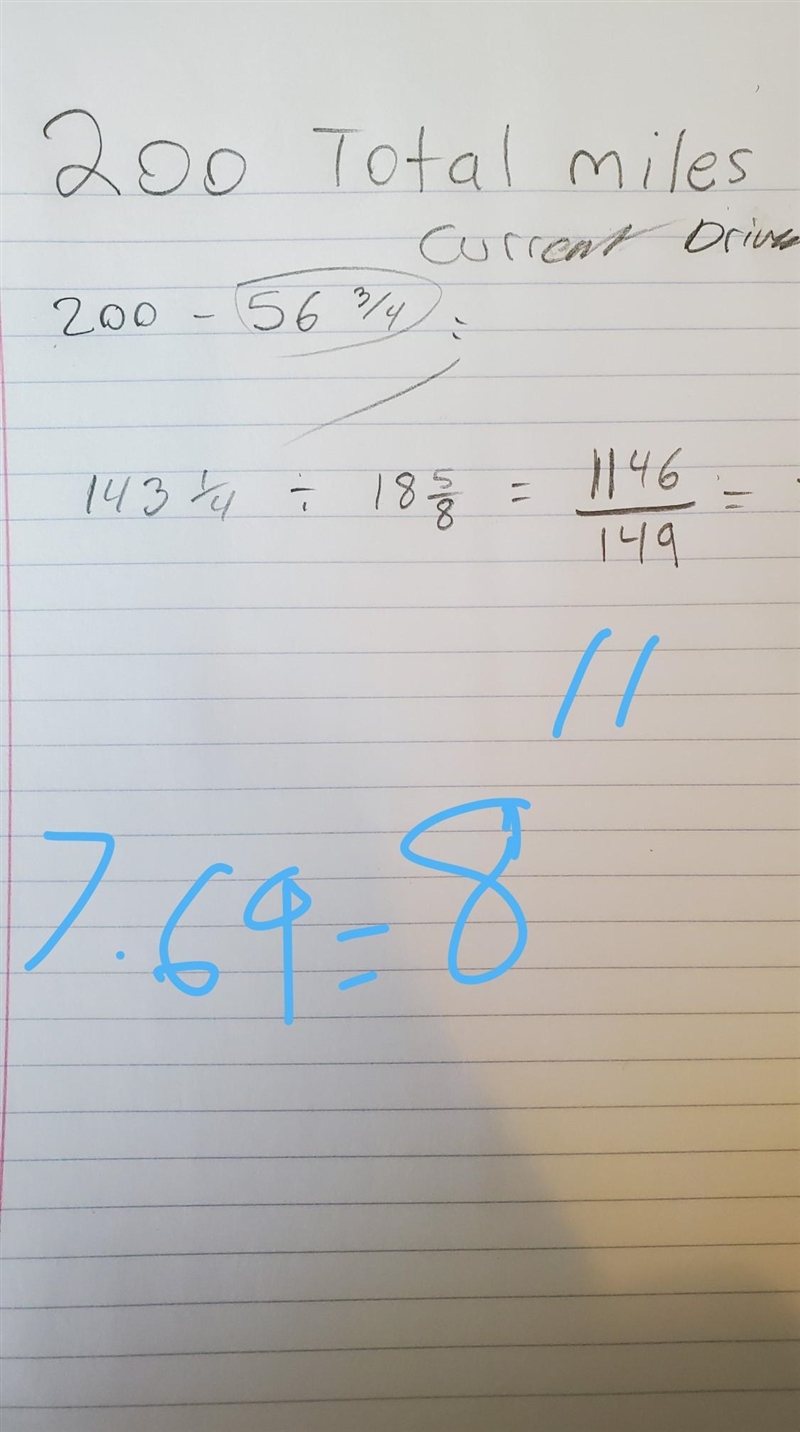 200 Total miles
Current
200 - 56 3/4 :
143 1/4 ÷ 18 5/8 = 1146/149 =
11
7.69=8